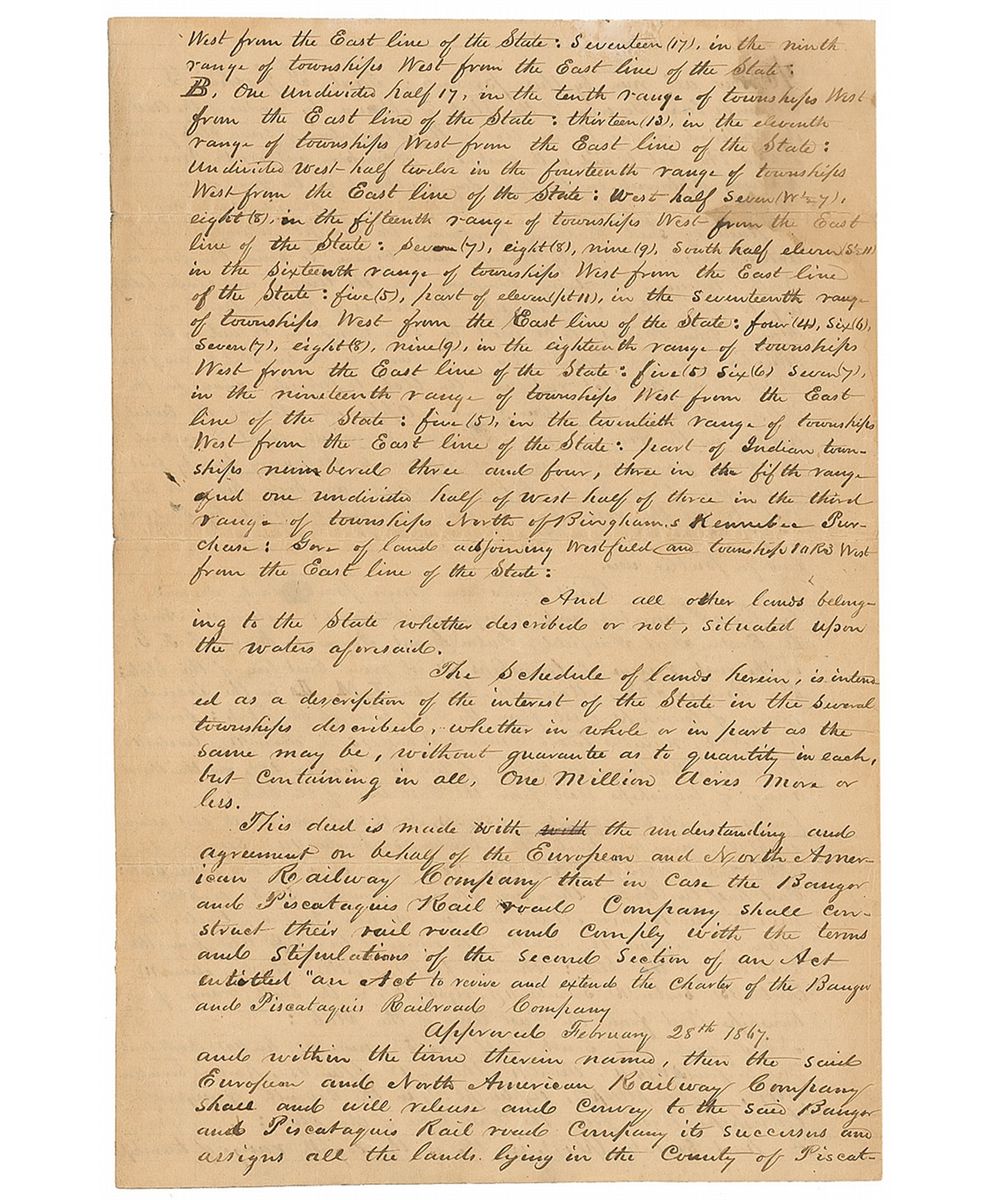 West from the East line of the State: Seventeen (17), in the ninth
range of townships West from the East line of the State:
B, One undivided half 17, in the tenth range of townships West
from the East line of the State: thirteen (13), in the eleventh
range of townships West from the East line of the State:
Undivided West half twelve in the fourteenth range of townships
West from the East line of the State: West half Seven (W ½ 7),
eight (8), in the fifteenth range of townships West from the East
line of the State: Seven (7), eight (8), nine (9), South half eleven (S ½ 11)
in the sixteenth range of townships West from the East line
of the State: five (5), part of eleven (pt 11), in the Seventeenth range
of townships West from the East line of the State: four (4), Six (6),
Seven (7), eight (8), nine (9), in the eighteenth range of townships
West from the East line of the State: five (5) Six (6) Seven (7),
in the nineteenth range of townships West from the East
line of the State: five (5), in the twentieth range of townships
West from the East line of the State: part of Indian town-
ships numbered three and four, three in the fifth range
and one undivided half of West half of three in the third
range of townships North of Bingham,s Kennebec Pur-
chase: Gore of land adjoining Westfield and township 1 R3 West
from the East line of the State:
And all other lands belong-
ing to the State whether described or not, situated upon
the waters aforesaid.
The Schedule of lands herein, is intend-
ed as a description of the interest of the State in the Several
townships described, whether in whole or in part as the
same may be, without guarantee as to quantity in each,
but containing in all, One Million Acres More or
less.
This deed is made with with the understanding and
agreement on behalf of the European and North Amer-
ican Railway Company that in case the Bangor
and Piscataquis Rail road Company shall con-
struct their rail road and comply with the terms
and stipulations of the second section of an Act
entitled "an Act to revive and extend the Charter of the Bangor
and Piscataquis Railroad Company
Approved February 28th 1867.
and within the time therein named, then the said
European and North American Railway Company
shall and will release and convey to the said Bangor
and Piscataquis Rail road Company its successors and
assigns all the lands lying in the County of Piscat-